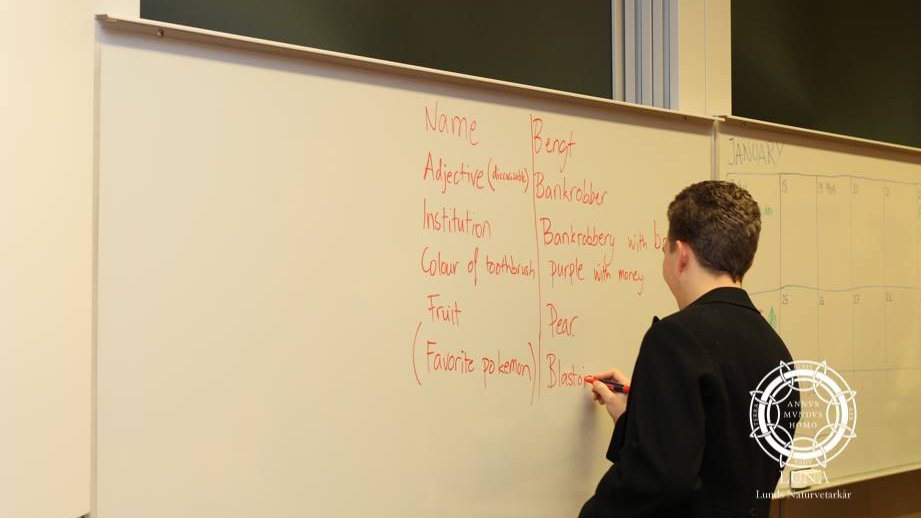 Name Bengt
Adjective (discussable) Bankrobber
Institution Bankrobbery with b
Colour of toothbrush purple with money
Fruit Pear
(Favorite pokemon) Blastoi
JANUARY
ANNVS
MVNDVS
HOMO
LUNA
Lunds Naturvetarkår